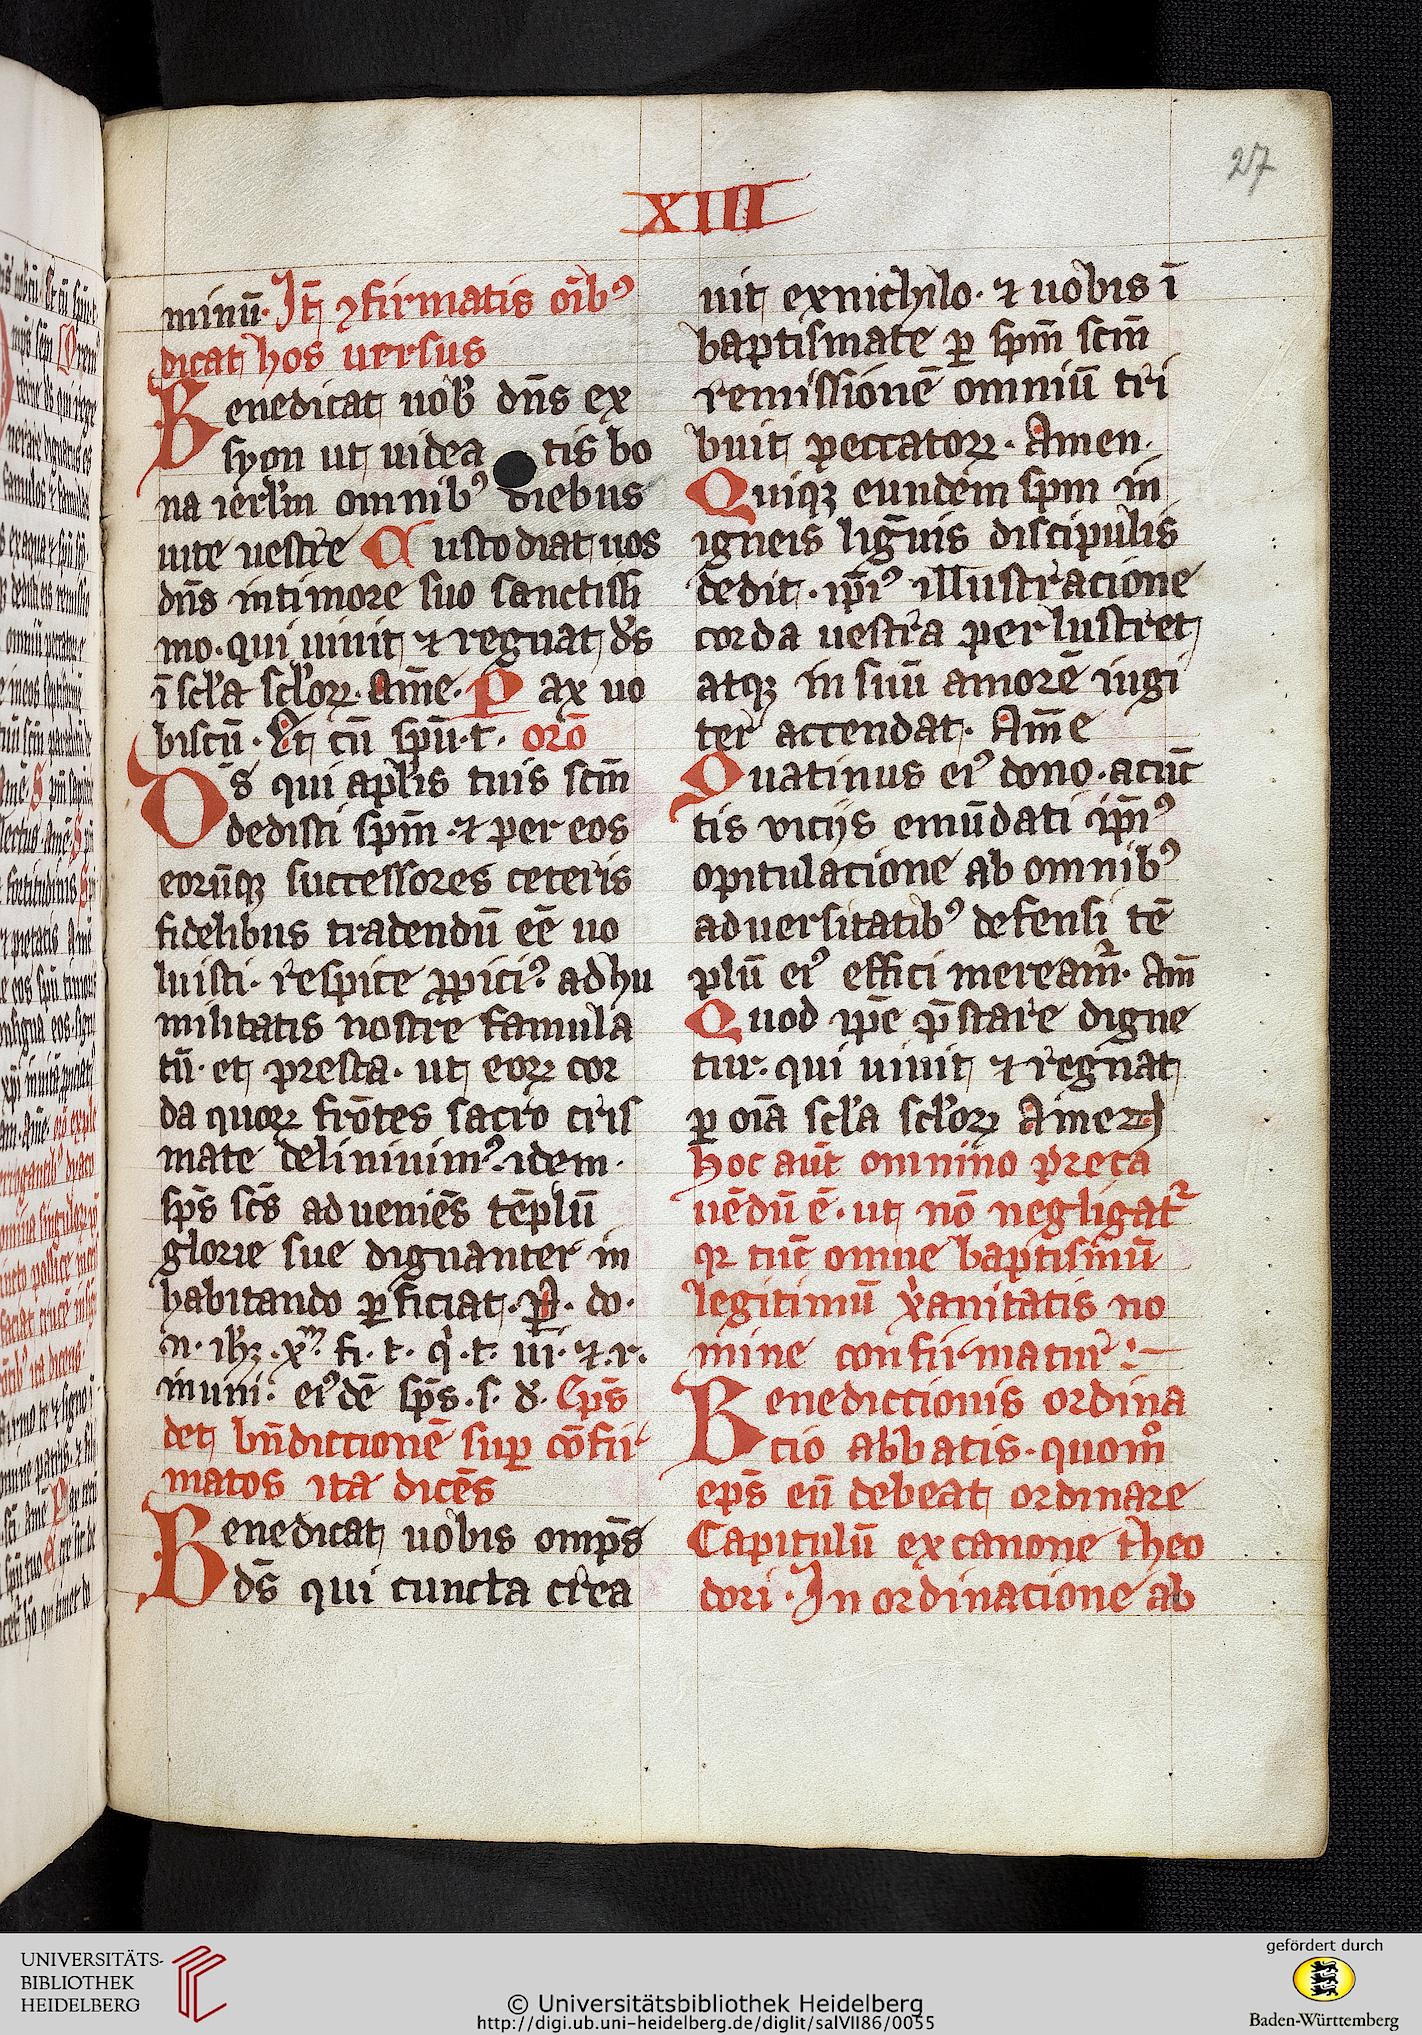 27
XIII
minū· Itē ꝯfirmatis oīb⁹
dicat hos uersus
Benedicat uob dn̄s ex
syon ut uidea tis bo
na ierl̄m omnib⁹ diebus
uite uestre Custodiat uos
dn̄s intimore suo sanctissi
mo· qui uiuit ⁊ regnat ds
ī scl̄a scl̄oꝝ· am̄e· Pax uo
biscū· Et cū spū·t· orō
Ds qui apl̄is tuis scm̄
dedisti spm̄ ·⁊ per eos
eorūqꝫ successores ceteris
fidelibus tradendū eē uo
luisti· respice ꝓpici⁹ adhu
militatis nostre famula
tū· et presta· ut eoꝝ cor
da quoꝝ frōtes sacro cris
mate deliniuim⁹· idem·
sps̄ scs̄ adueniēs tēplū
glorie sue dignanter in
habitando ꝑficiat· P· do·
n· ihꝫ· xᵐ· fi· t· q̇· t· ui· ⁊·r·
inuni· ei⁹dē sps̄·s· d· Eps̄
det bn̄dictionē suꝑ cōfir
matos ita dicēs
Benedicat uobis omps̄
ds̄ qui cuncta crea
uit exnichilo· ⁊ uobis ī
baptismate ꝑ spm̄ scm̄
remissionē omniū tri
buit peccatoꝝ· Amen·
Quiqꝫ eundem spm in
igneis lig̅uis discipulis
dedit· ip̄i⁹ illustracione
corda uestra perlustret
atqꝫ in suū amorē iugi
ter accendat· Am̄e
Quatinus ei⁹ dono· acūc
tis vicijs emūdati ip̄i⁹
opitulacione ab omnib⁹
aduersitatib⁹ defensi tē
plū ei⁹ effici mereamᷣ· Am̄
Quod ip̄e p̄stare digne
tur· qui uiuit ⁊ regnat
ꝑ oīa scl̄a scl̄oꝝ Amen
hoc aūt omnino preca
uēdū ē· ut nō negligatᷣ
qꝛ tūc omne baptismū
legitimū xanitatis no
mine confirmatur:
Benedictionis ordina
cio abbatis· quomͦ
eps̄ eū debeat ordinare
Capitulū ex canone theo
dori· In ordinacione ab
UNIVERSITÄTS-
BIBLIOTHEK
HEIDELBERG
© Universitätsbibliothek Heidelberg
http://digi.ub.uni-heidelberg.de/diglit/salVII86/0055
gefördert durch
Baden-Württemberg